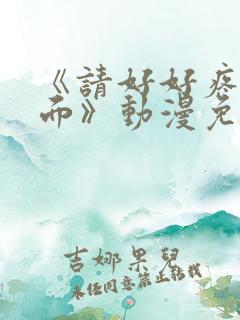 《請好好疼
而》動漫免
吉娜果兒
未經同意禁止轉載